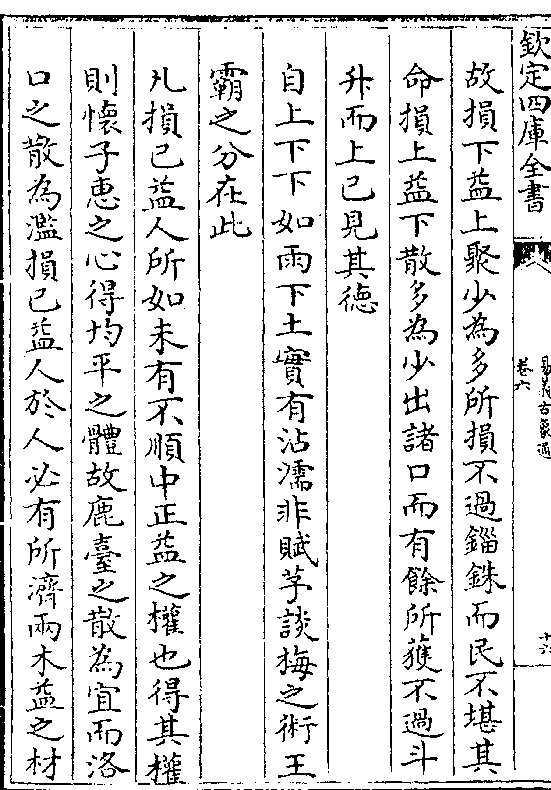 欽定四庫全書
易義古象通
卷六
十六
故損下益上聚少為多所損不過錙銖而民不堪其
命損上益下散多為少出諸口而有餘所獲不過斗
升而上已見其德
自上下下如雨下土實有沾濡非賦芧談梅之術王
霸之分在此
凡損已益人所如未有不順中正益之權也得其權
則懷子惠之心得均平之體故鹿臺之散為宜而洛
口之散為濫損已益人於人必有所濟兩木益之材